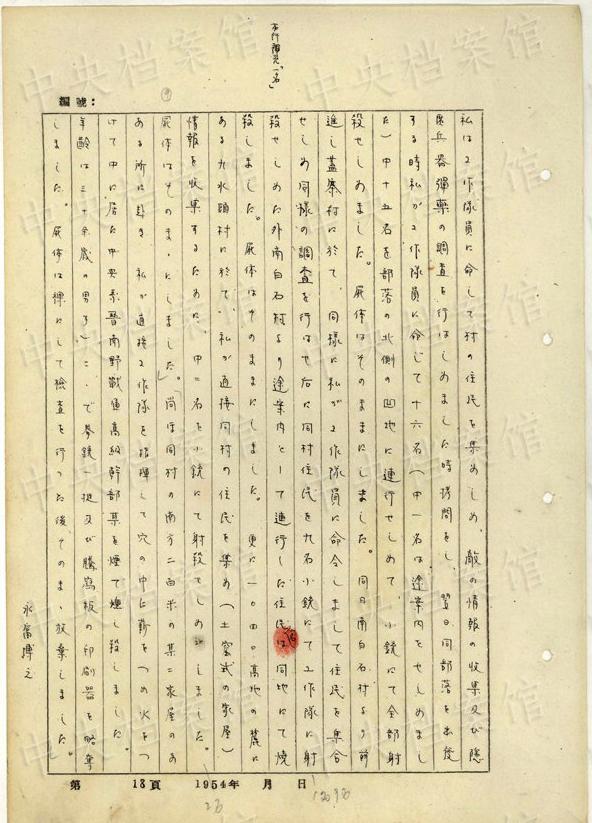 編號：
私は工作隊員に命じて村の住民を集めしめ、敵の情報の収集及び隠
匿兵器彈藥の調査を行はしめました時拷問をし、翌日同部落を出發
する時私が工作隊員に命じて十六名（中一名は途案内をせしめまし
た）中十五名を部落の北側の凹地に連行せしめて、小銃にて全部射
殺せしめました。屍体はそのままにしました。同日南白石村より前
進し蓋寨村に於て、同様に私が工作隊員に命令しまして住民を集合
せしめ同様の調査を行はせ后に同村住民を九名小銃にて工作隊に射
殺せしめた外南白石村より途案内として連行した住民は同地にて焼
殺しました。屍体はそのままにしました。更に一〇四〇高地の麓に
ある九水頭村に於て、私が直接同村の住民を集め（土窑式の家屋）
情報を收集するために、中二名を小銃にて射殺せしめしました。
屍体はそのまゝにしました。尚ほ同村の南方二百米の某家屋のあ
る所に赴き、私が直接工作隊を指揮して穴の中に薪をつめ火をつ
けて中に居た中央系晋南野戰高級幹部某を煙で燻し殺しました。
年齢は三十余歳の男子）こゝで拳銃一挺及び謄寫板の印刷器を略奪
しました。屍体は裸にして検査を行った後そのまゝ放棄しました。
永富博之
第 18頁 1954年 月 日
中央档案馆